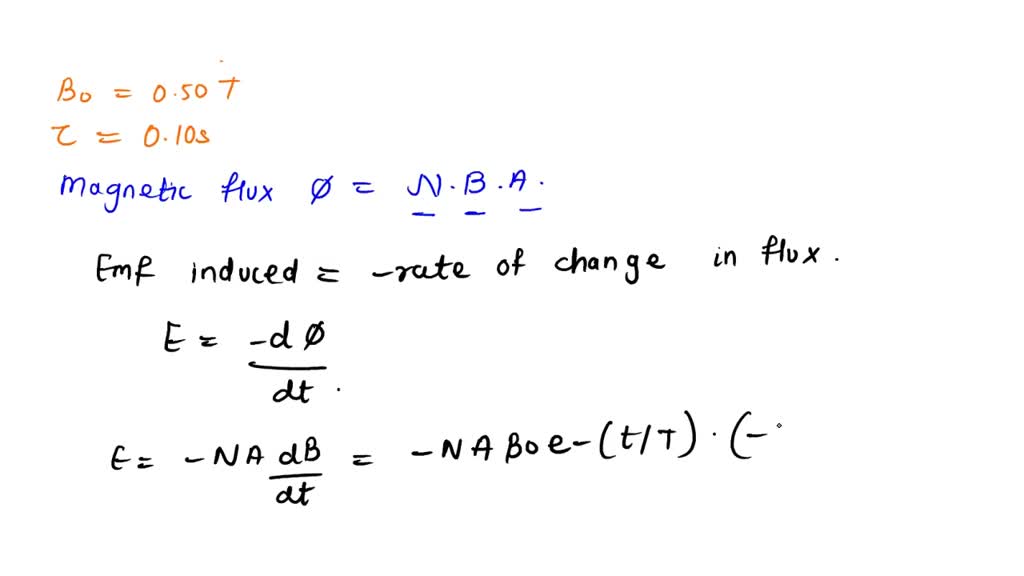 B0 = 0.50 T
τ = 0.10s
Magnetic flux ∅ = N.B.A.
Emf induced = -rate of change in flux.
E = -d∅/dt.
E = -NA dB/dt = -NAB0e-(t/T)·(-